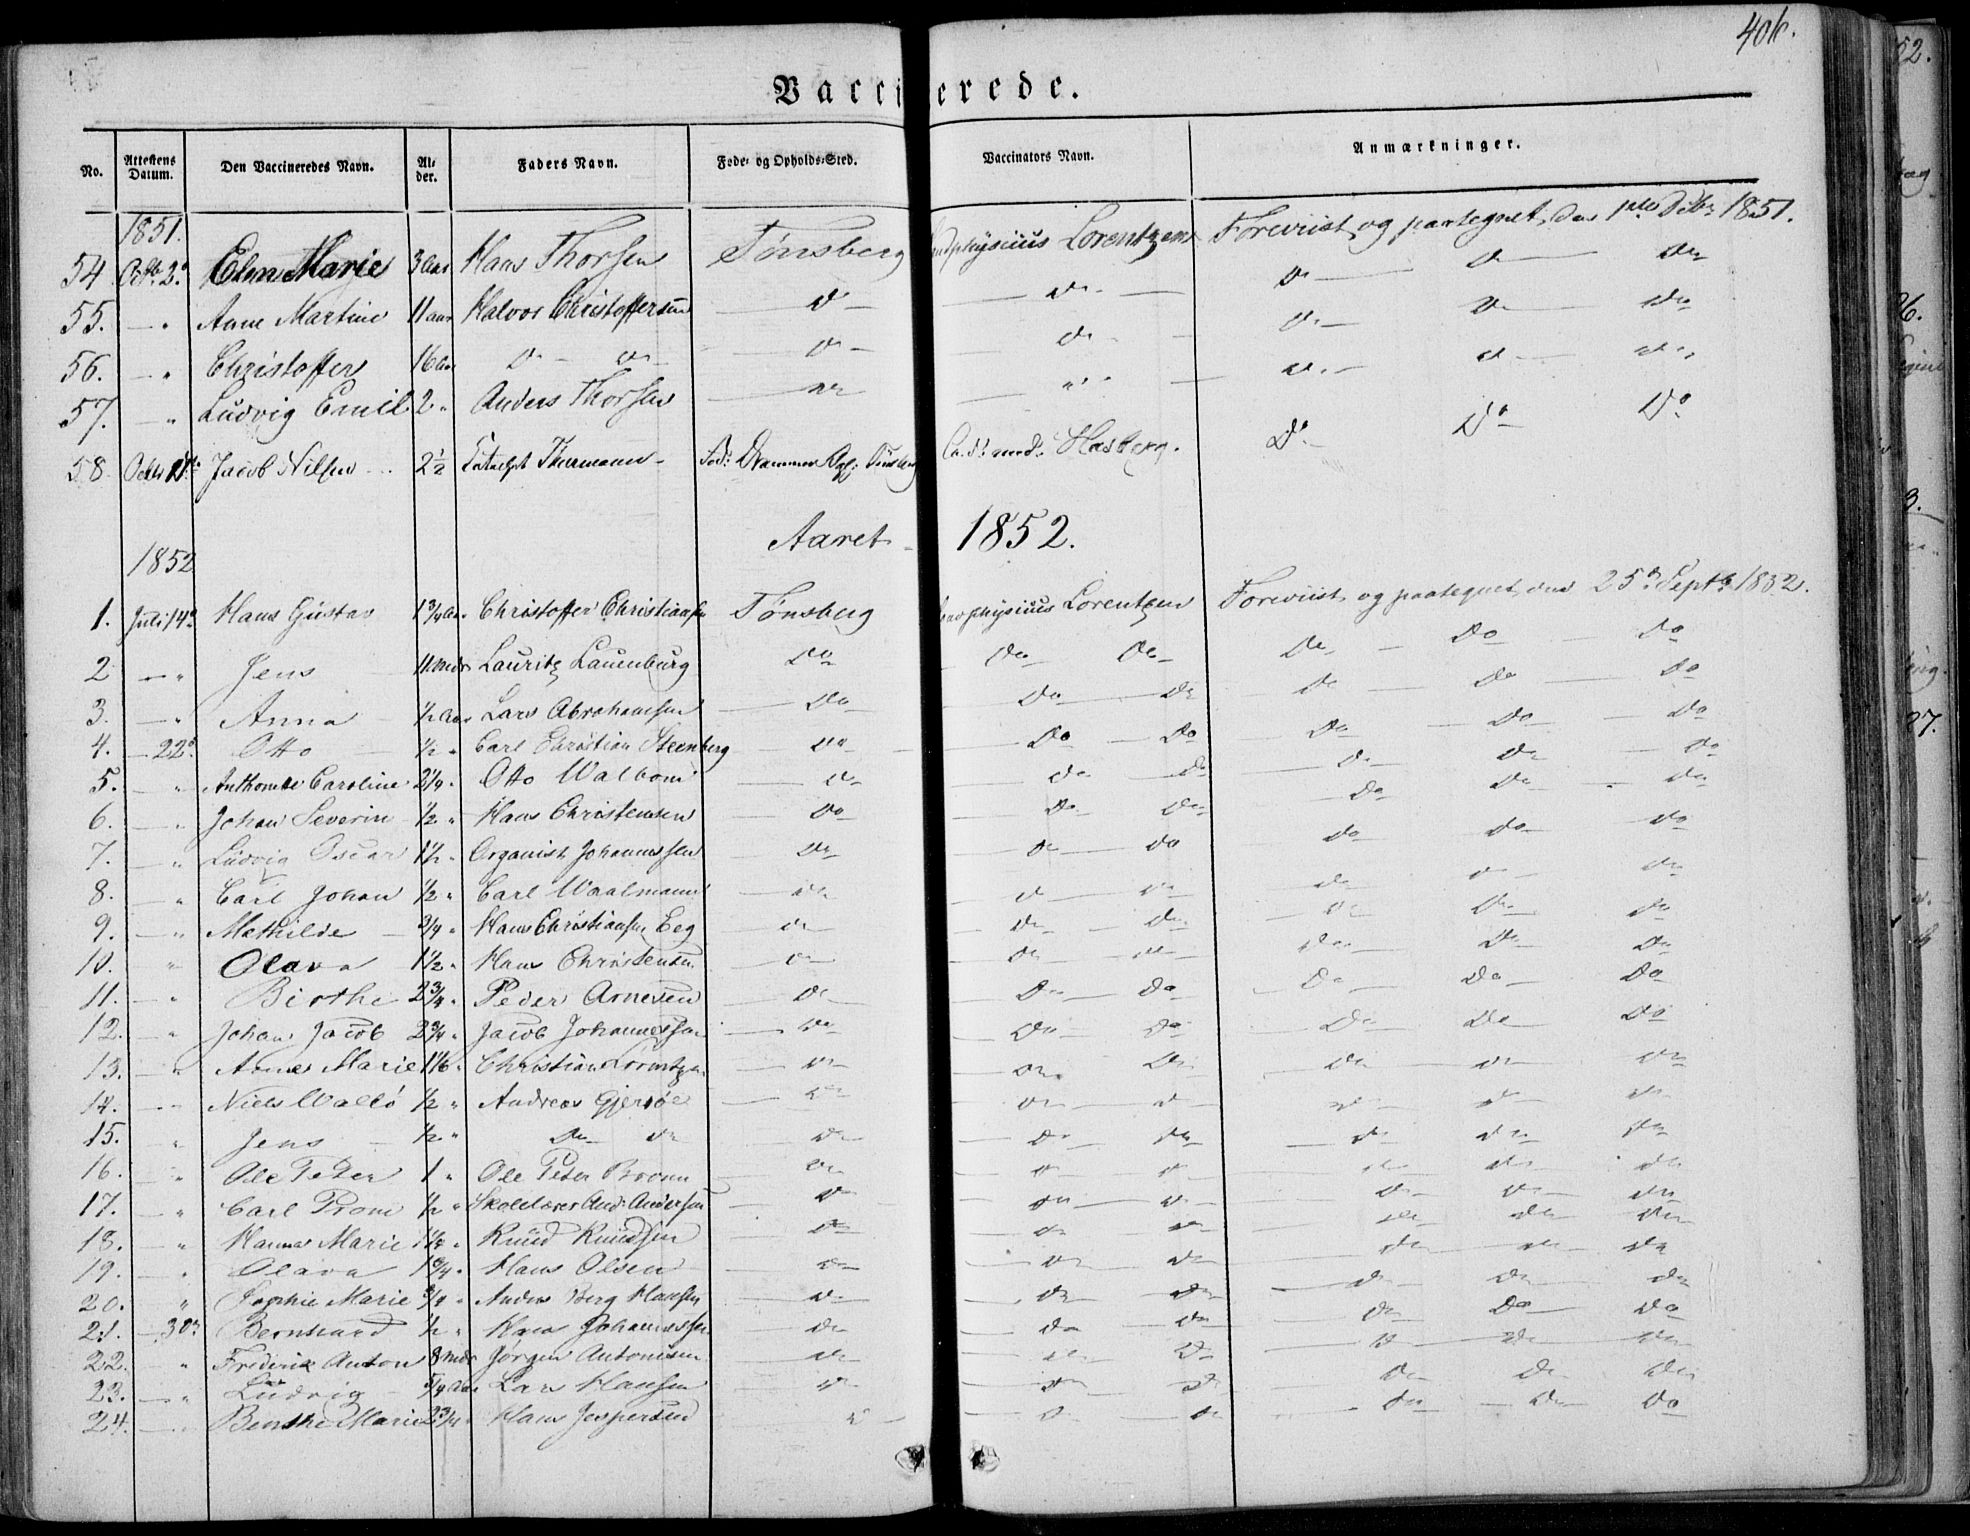 406.
Vaccinerede.
No. Attestens Datum. Den Vaccineredes Navn. Al-der. Faders Navn. Føde- og Opholds-Sted. Vaccinators Navn. Anmærkninger.
1851.
54 Octb. 2d Elen Marie 3 Aar Hans Thorsen Tønsberg Landphysicus Lorentzen Foreviist og paategnet den 1ste Octbr 1851.
55. — " Anne Martine 11 aar Halvor Christoffersen Do Do Do Do Do
56. — " Christoffer 16 Aar Do Do Do Do Do Do Do
57. — " Ludvig Emil 2 " Anders Thorsen Do " " Do Do Do
58 Octbr Jacob Nilsen 2½ Thurmann Fød: Drammen Opf: Tønsberg Cand: med: Hasberg. Do Do Do
Aaret 1852.
1852
1. Juli 14d Hans Gustav 1¾ Aar Christoffer Christiansen Tønsberg Landphysicus Lorentzen Foreviist og paategnet den 25d Septb 1852.
2 — " Jens 11 Mdr Lauritz Lauenburg Do Do Do Do Do Do
3. — " Anna ½ Aar Lars Abrahamsen Do Do Do Do Do Do
4. — 22d Otto ½ " Carl Christian Steenberg Do Do Do Do Do Do
5. " Anthonette Caroline 2¼ " Otto Walbom Do Do Do Do Do Do
6. — " Johan Severin ½ " Hans Christensen Do Do Do Do Do Do
7. — " Ludvig Oscar 1½ " Organist Johannessen Do Do Do Do Do Do
8. — " Carl Johan ½ " Carl Waalmann Do Do Do Do Do Do
9. — " Mathilde ¾ " Hans Christiansen Eeg Do Do Do Do Do Do
10. " Olava 1½ " Hans Christensen Do Do Do Do Do Do
11. — " Birthe 2¾ " Peder Arnesen Do Do Do Do Do Do
12. " Johan Jacob 2¾ " Jacob Johannessen Do Do Do Do Do Do
13. — " Anne Marie 1⅙ " Christian Lorentzen Do Do Do Do Do Do
14. — Niels Wallø ½ " Andreas Gjersøe Do Do Do Do Do Do
15. " Jens ½ " Do Do Do Do Do Do Do Do
16. " Ole Peter 1 " Ole Peter Do Do Do Do Do Do
17. — " Carl Prom ½ " Skolelærer And: Andersen Do Do Do Do Do Do
18. — " Hanna Marie " Knud Knudsen Do Do Do Do Do Do
19. — " Olava 1¾ " Hans Olsen Do Do Do Do Do Do
20. " Sophie Marie ¾ " Anders Berg Hansen Do Do Do Do Do Do
21. — 30d Bernhard ½ " Hans Johannessen Do Do Do Do Do Do
22. " Frederik Anton 8 Mdr Jørgen Antonisen Do Do Do Do Do Do
23. — " Ludvig Aar Lars Hansen Do Do Do Do Do Do
24. — " Benthe Marie 2¾ " Hans Jespersen Do Do Do Do Do Do